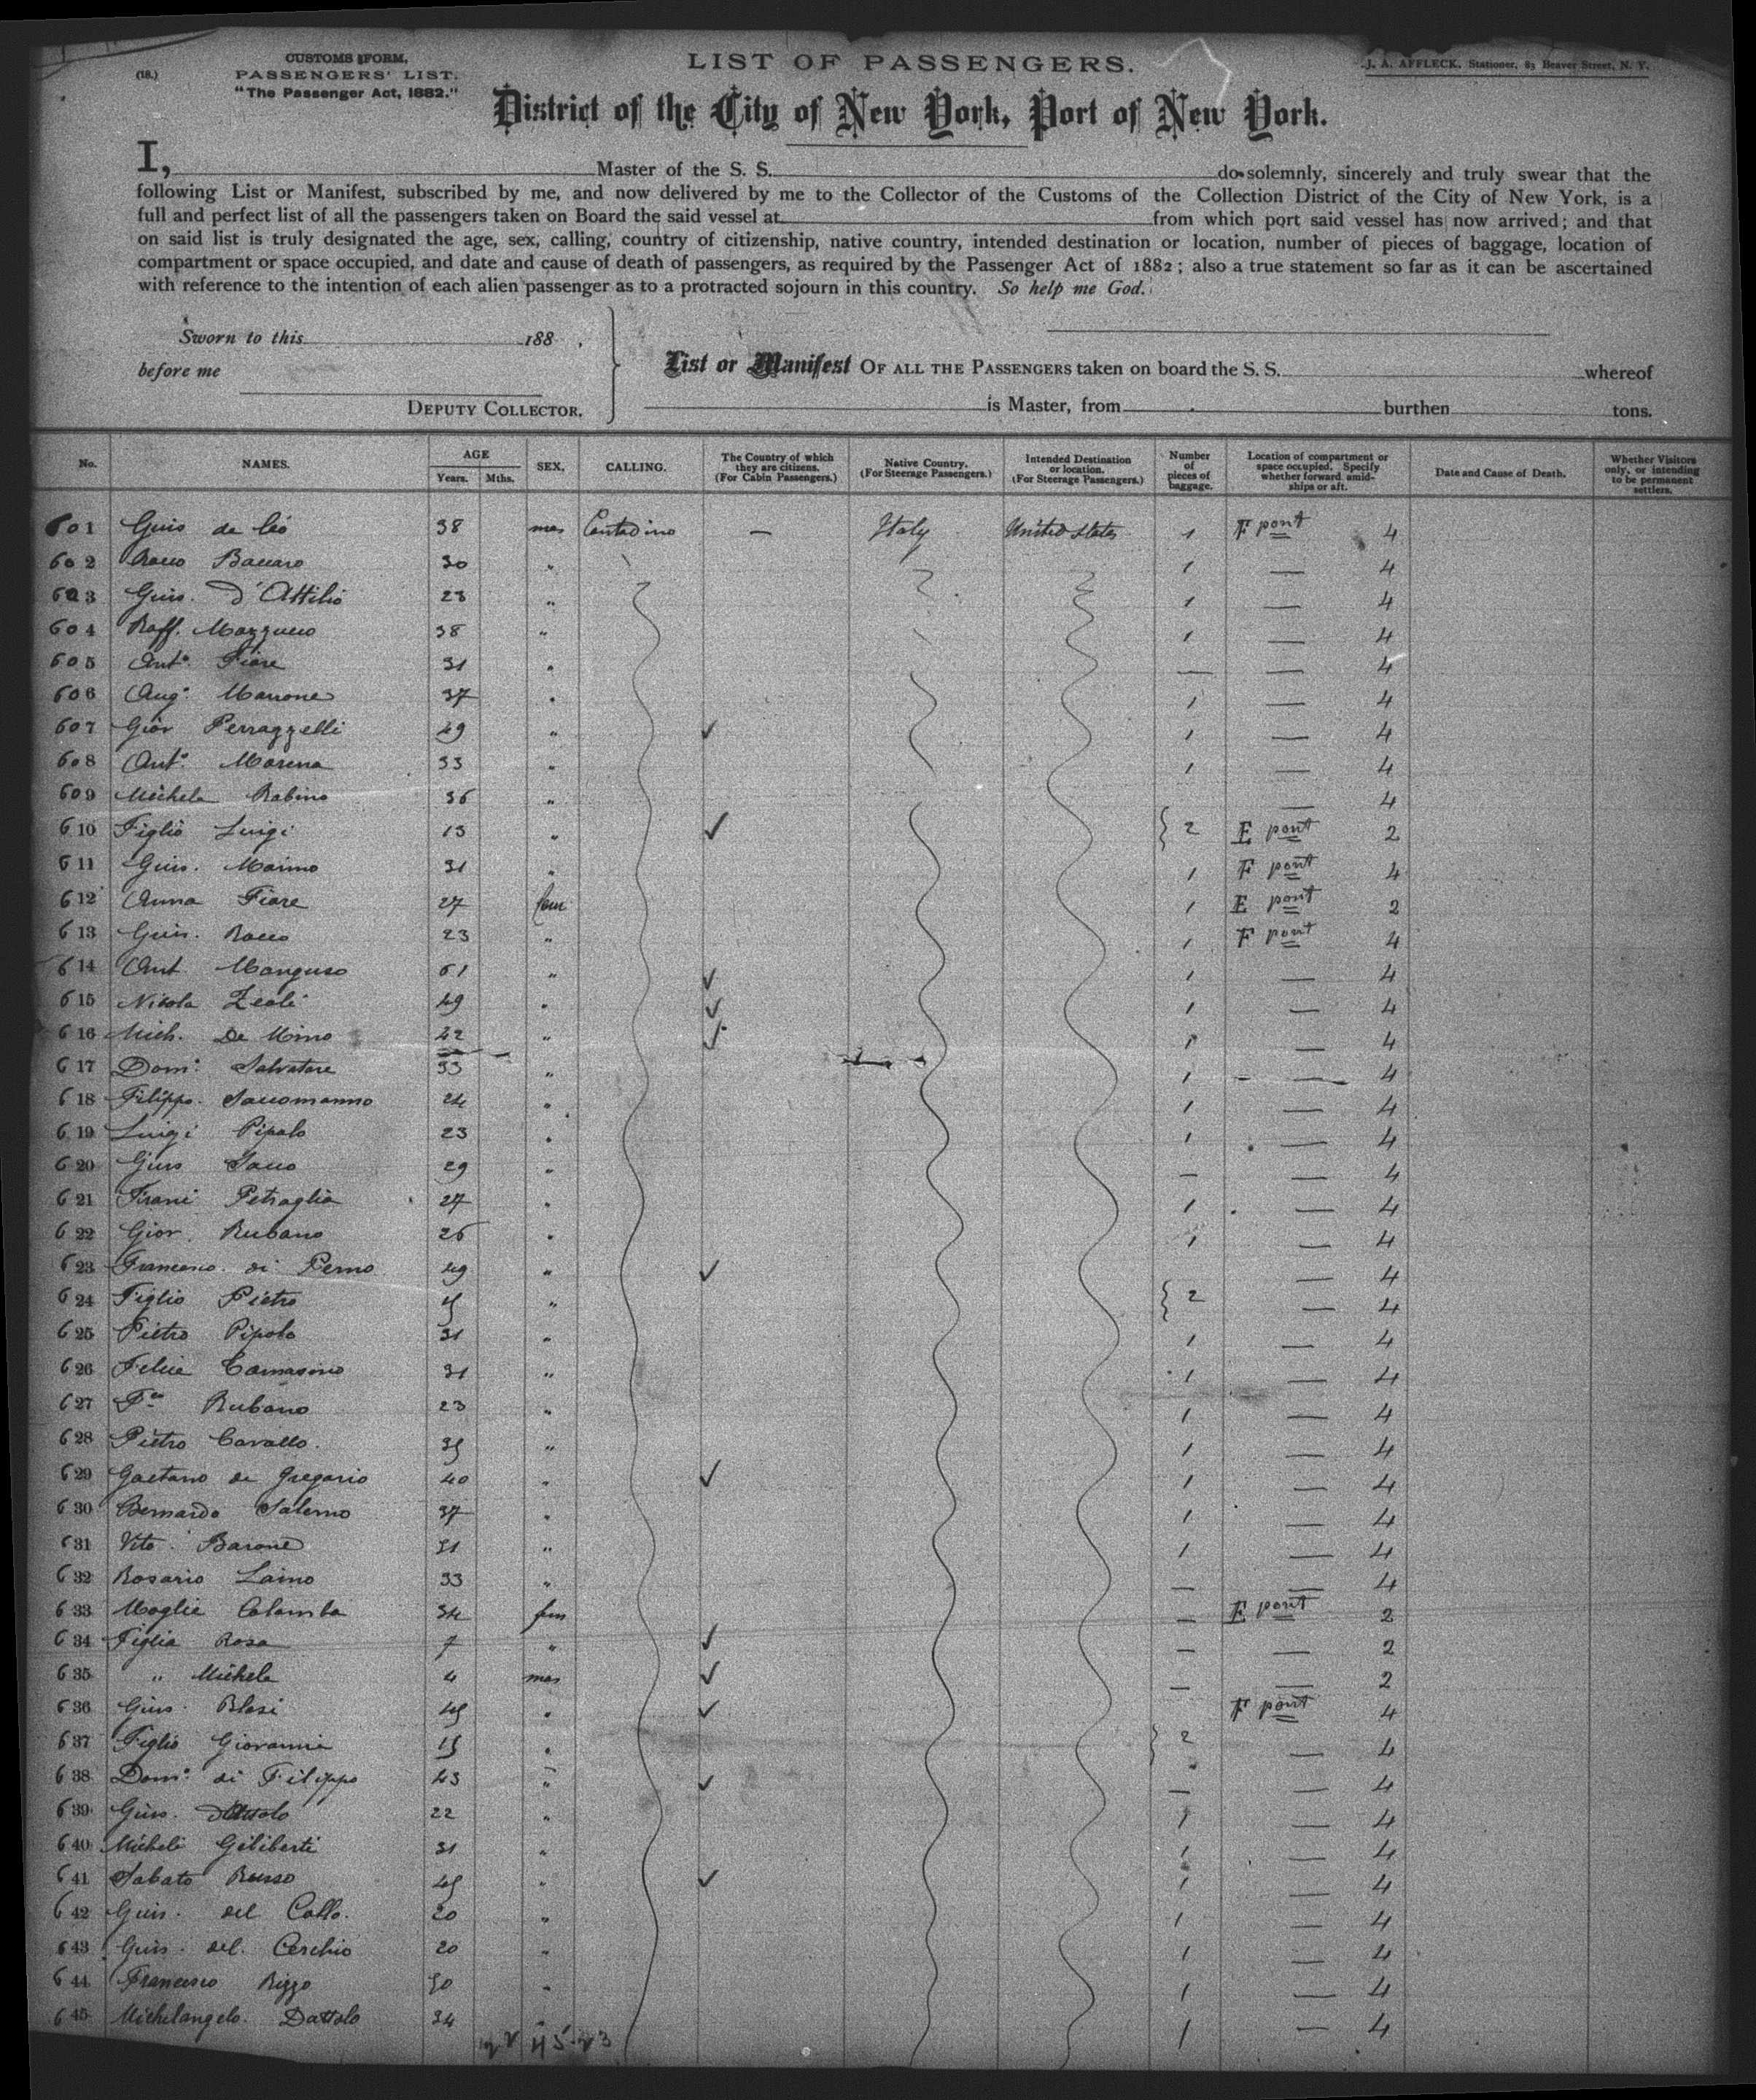 (18.)
CUSTOMS FORM.
PASSENGERS' LIST.
"The Passenger Act, 1882."
LIST OF PASSENGERS.
J. A. AFFLECK, Stationer, 83 Beaver Street, N. Y.
District of the City of New York, Port of New York.
I, Master of the S. S. do solemnly, sincerely and truly swear that the
following List or Manifest, subscribed by me, and now delivered by me to the Collector of the Customs of the Collection District of the City of New York, is a
full and perfect list of all the passengers taken on Board the said vessel at from which port said vessel has now arrived; and that
on said list is truly designated the age, sex, calling, country of citizenship, native country, intended destination or location, number of pieces of baggage, location of
compartment or space occupied, and date and cause of death of passengers, as required by the Passenger Act of 1882; also a true statement so far as it can be ascertained
with reference to the intention of each alien passenger as to a protracted sojourn in this country. So help me God.
Sworn to this 188 .
before me
DEPUTY COLLECTOR.
List or Manifest OF ALL THE PASSENGERS taken on board the S. S. whereof
is Master, from burthen tons.
No. NAMES. AGE Years. Mths. SEX. CALLING. The Country of which they are citizens. (For Cabin Passengers.) Native Country. (For Steerage Passengers.) Intended Destination or location. (For Steerage Passengers.) Number of pieces of baggage. Location of compartment or space occupied. Specify whether forward, amidships or aft. Date and Cause of Death. Whether Visitors only, or intending to be permanent settlers.
601 Gius de Leo 38 mas Contadino — Italy United States 1 F pont 4
602 Rocco Baccaro 30 " 1 — 4
603 Gius. D'Attilio 23 " 1 — 4
604 Raff. Mazzucco 38 " 1 — 4
605 Ant° Fiore 31 " — — 4
606 Aug° Marrone 37 " 1 — 4
607 Giov Perrazzelli 49 " ✓ 1 — 4
608 Ant° Morena 33 " 1 — 4
609 Michele Rabino 36 " — 4
610 Figlio Luigi 13 " ✓ } 2 E pont 2
611 Gius. Marino 31 " 1 F pont 4
612 Anna Fiore 27 fem 1 E pont 2
613 Gius. Rocco 23 " 1 F pont 4
614 Ant Manguso 61 " ✓ 1 — 4
615 Nicola Zeoli 49 " ✓ 1 — 4
616 Mich. De Mino 42 " ✓ 1 — 4
617 Dom° Salvatore 33 " 1 — 4
618 Filippo Saccomanno 24 " 1 — 4
619 Luigi Pipolo 23 " 1 — 4
620 Gius Sacco 29 " — — 4
621 Franc Petraglia 27 " 1 — 4
622 Giov. Rubano 26 " 1 — 4
623 Francesco di Perno 49 " ✓ — 4
624 Figlio Pietro " } 2 — 4
625 Pietro Pipolo 31 " 1 — 4
626 Felice Tomasino 31 " 1 — 4
627 Fco Rubano 23 " 1 — 4
628 Pietro Cavallo. 35 " 1 — 4
629 Gaetano de Gregorio 40 " ✓ 1 — 4
630 Bernardo Salerno 37 " 1 — 4
631 Vito Barone 31 " 1 — 4
632 Rosario Laino 33 " — — 4
633 Moglie Colomba 34 fem — E pont 2
634 Figlia Rosa 7 " ✓ — — 2
635 " Michele 4 mas ✓ — — 2
636 Gius Blasi 45 " ✓ F pont 4
637 Figlio Giovanni 15 " } 2 — 4
638 Dom° di Filippo 43 " ✓ — — 4
639 Gius. 22 " 1 — 4
640 Michele Giliberti 31 " 1 — 4
641 Sabato Russo 45 " ✓ 1 — 4
642 Gius. del Collo. 20 " 1 — 4
643 Gius. del Cerchio 20 " 1 — 4
644 Francesco Rizzo 30 " 1 — 4
645 Michelangelo Dattolo 34 " 1 — 4